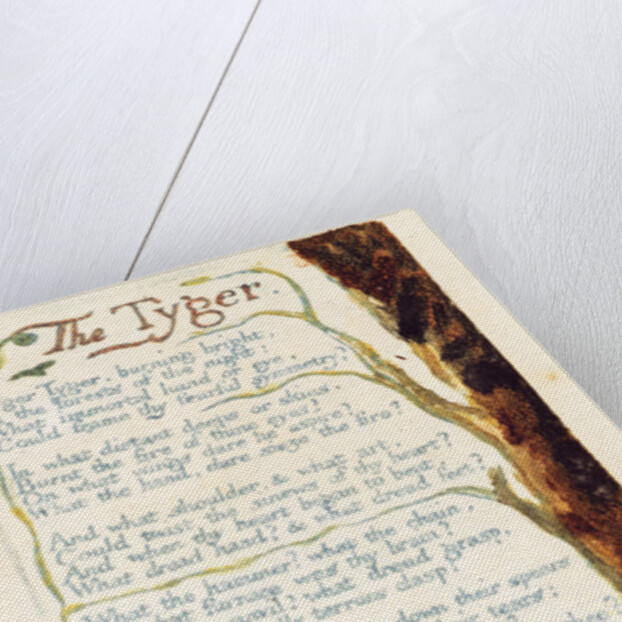 The Tyger.
Tyger, burning bright,
the forests of the night:
What immortal hand or eye,
Could frame thy fearful symmetry?
In what distant deeps or skies,
Burnt the fire of thine eyes?
On what wings dare he aspire?
What the hand, dare sieze the fire?
And what shoulder, & what art,
Could twist the sinews of thy heart?
And when thy heart began to beat,
What dread hand? & what dread feet?
What the hammer? what the chain,
what furnace was thy brain?
what dread grasp,
terrors clasp?
down their spears
tears: